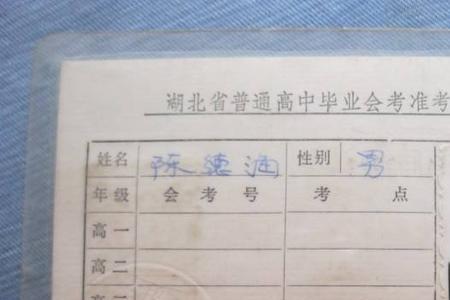 湖北省普通高中毕业会考准考
姓名 陈德润 性别 男
年级 会考号 考点
高一
高二
高三